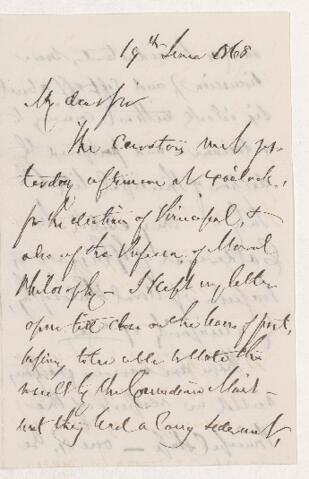 19th June 1868
My dear Sir
The Curators met yes-
terday afternoon at 4 o'clock,
for the election of Principal, &
also of the Professor of Moral
Philosophy — I kept my letter
open till close on the hour of post,
hoping to be able to state the
result by the Canadian Mail —
but they had a long sederunt,